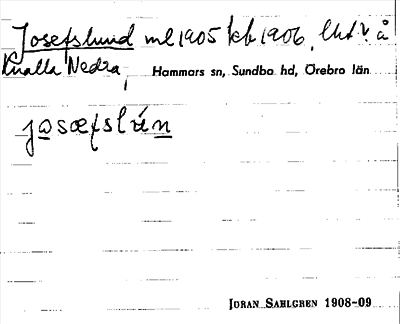 Josefslund ml 1905 kb 1906, Utd v. å
Knalla Nedra, Hammars sn, Sundbo hd, Örebro län
josæfslún
JÖRAN SAHLGREN 1908-09